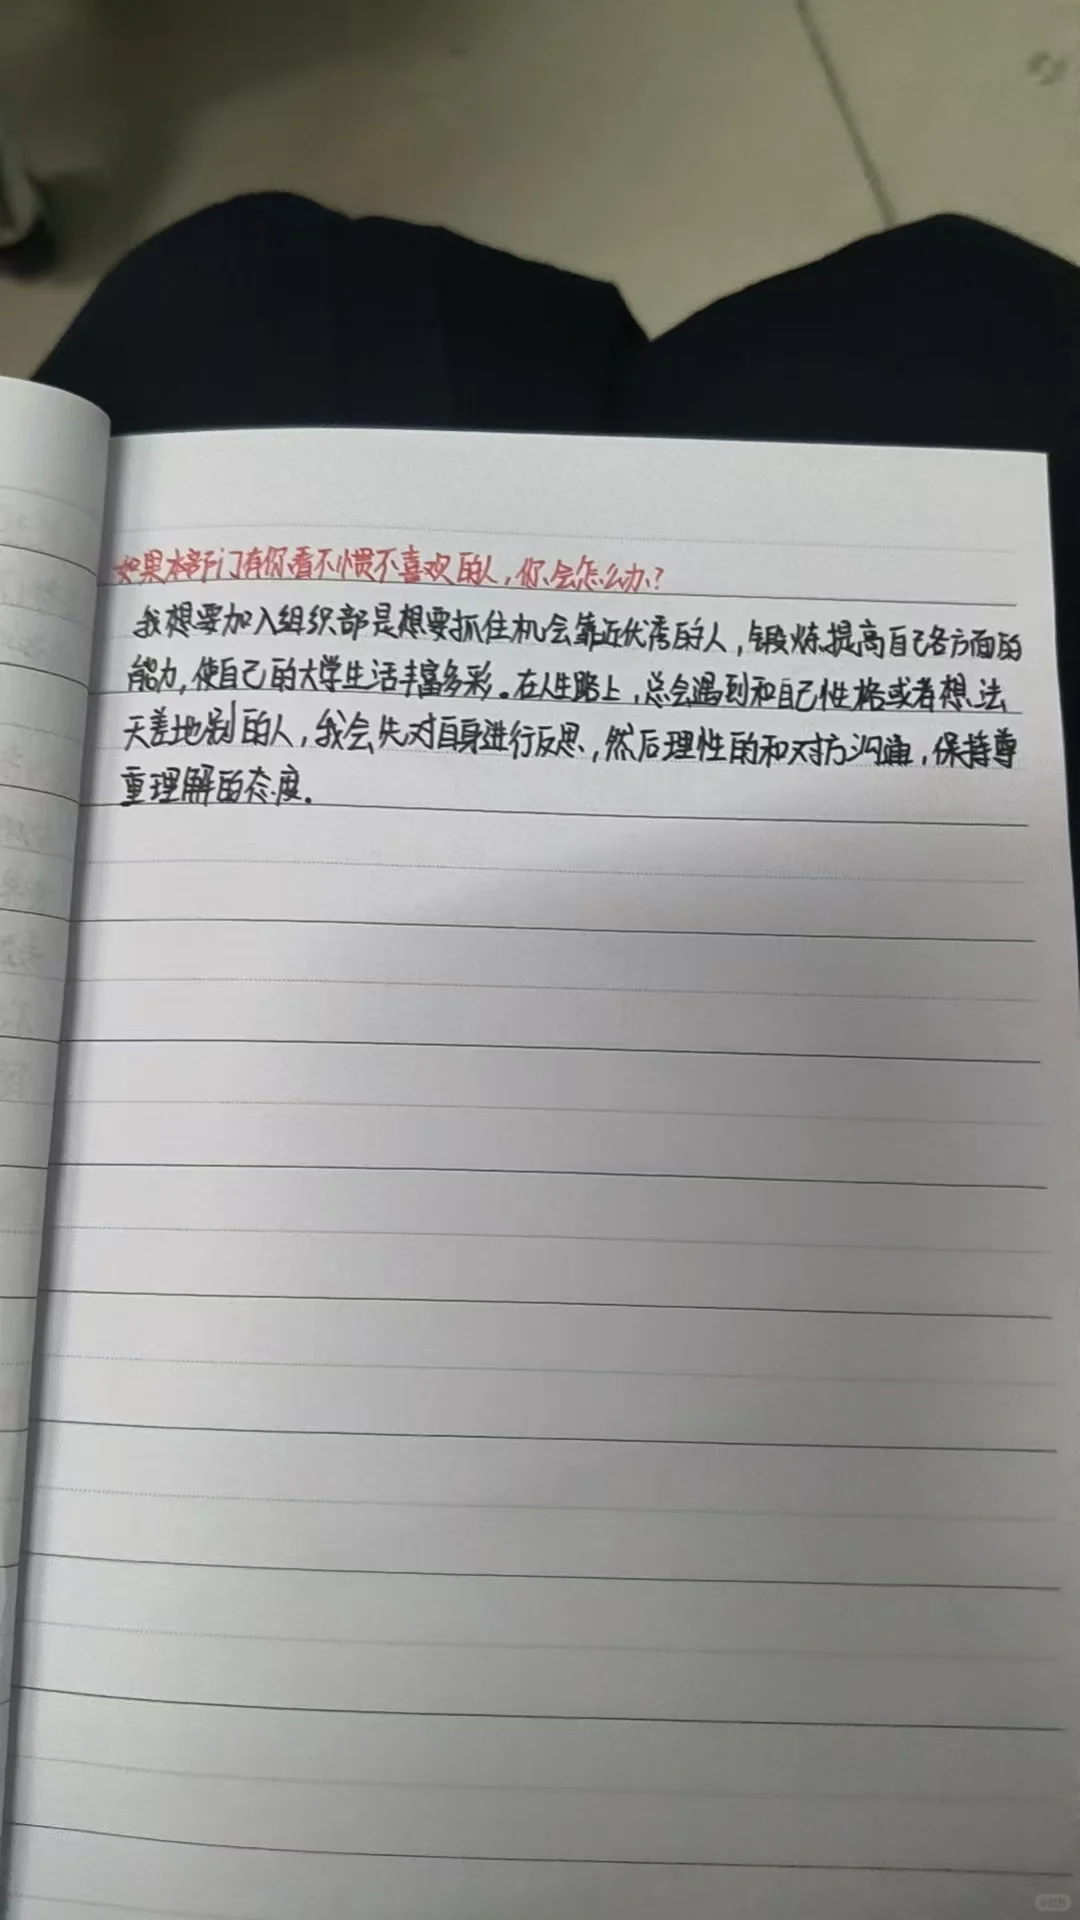 如果本部门有你看不惯不喜欢的人，你会怎么办？
我想要加入组织部是想要抓住机会靠近优秀的人，锻炼提高自己各方面的
能力，使自己的大学生活丰富多彩。在人生路上，总会遇到和自己性格或者想法
天差地别的人，我会先对自身进行反思，然后理性的和对方沟通，保持尊
重理解的态度.
小红书